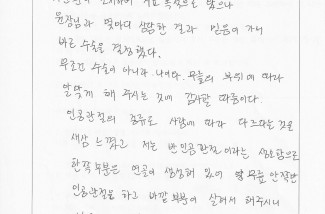 원장님과 몇마디 상담한 결과 믿음이 가니
바로 수술을 결정했다.
무조건 수술이 아니라 나이와 무릎의 부위에 따라
알맞게 해 주시는 것에 감사할 따름이다.
인공관절의 종류도 사람에 따라 다르다는 것을
새삼 느꼈고 저는 반인공관절이라는 생소함으로
한쪽부분은 연골이 생성해 있어 양 무릎 안쪽만
인공관절을 하고 바깥 부분이 살려서 해주시니